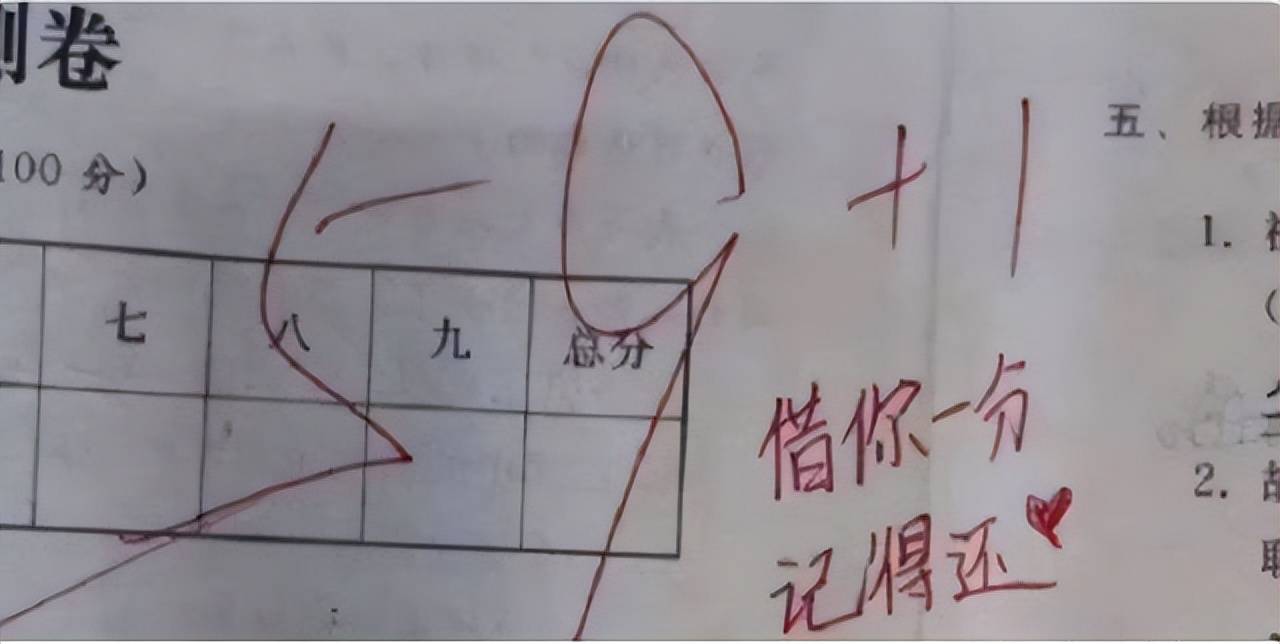 测卷
100 分）
七 八 九 总分
59 + 1
借你一分
记得还
五、根据
1.
2.